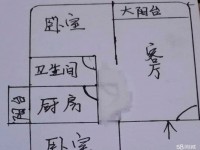 卧室
大阳台
卫生间
客厅
阳台
厨房
卧室